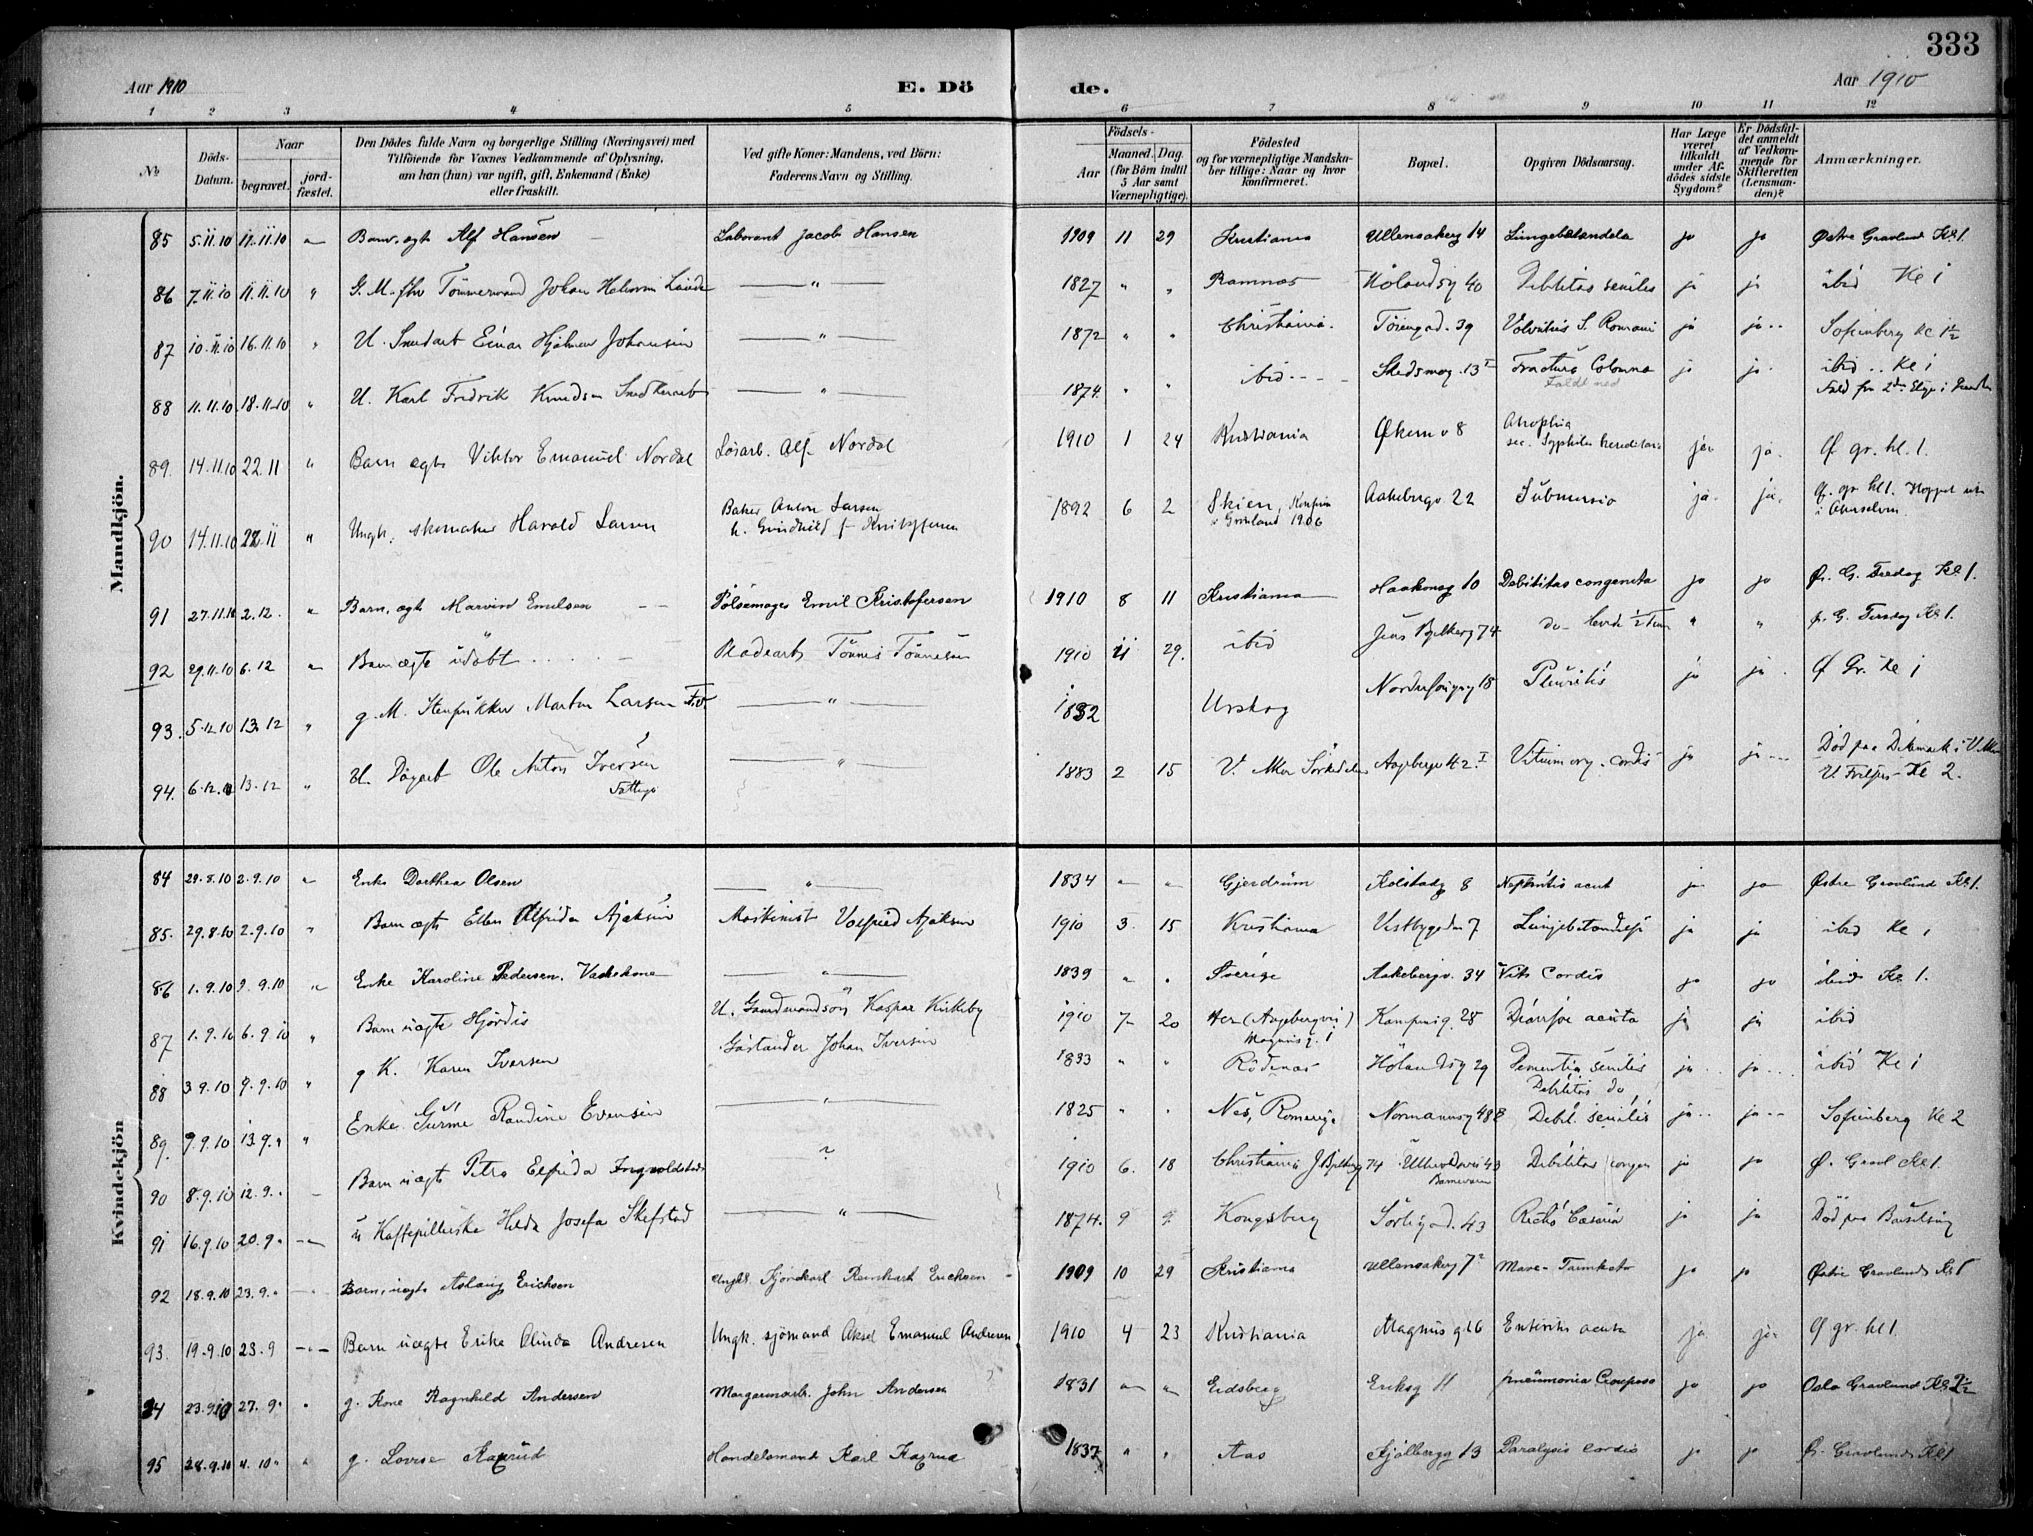 333
Aar 1910
E. Dö
de.
Aar 1910
1 2 3 4 5 6 7 8 9 10 11 12
№
Döds-Datum.
Naar
begravet.
jord-fæstet.
Den Dödes fulde Navn og borgerlige Stilling (Næringsvei) med Tilföiende for Voxnes Vedkommende af Oplysning, om han (hun) var ugift, gift, Enkemand (Enke) eller fraskilt.
Ved gifte Koner: Mandens, ved Börn: Faderens Navn og Stilling.
Födsels-
Aar
Maaned. Dag
(for Börn indtil 5 Aar samt Værnepligtige).
Födested og for værnepligtige Mandskaber tillige: Naar og hvor konfirmeret.
Bopæl.
Opgiven Dödsaarsag.
Har Læge været tilkaldt under Afdödes sidste Sygdom?
Er Dödsfaldet anmeldt af Vedkommende for Skifteretten (Lensmanden)?
Anmærkninger.
Mandkjön.
85 5.11.10 11.11.10 Barn, ægte Alf Hansen Laborant Jacob Hansen 1909 11 29 Kristiania Ullensakerg 14 Lungebetændelse ja ja Østre Gravlund Kl 1.
86 7.11.10 11.11.10 " G. M. fhv Tömmermand Johan — " — 1827 " " Ramnæs Hölandsg 40 Debilitas senilis ja ja ibid Kl 1
87 10.11.10 16.11.10 " U. Snedkarb Einar Hjalmar Johansen — " — 1872 " " Christiania. Töiengad. 39 Volvulus S. Romani ja ja Sofienberg Kl 1½
88 11.11.10 18.11.10 " U. Karl Fredrik Knudsen Snedkerarb — " — 1874. " " ibid Skedsmog. 13 I Fractura Columna ja ja. ibid Kl 1
Faldt ned
89. 14.11.10 22.11 " Barn ægte Viktor Emanuel Nordal Løsarb. Alf Nordal 1910 1 24 Kristiania Økernv 8 Atrophia
sec. Syphilis hereditaria ja ja. Ø gr. kl. 1.
90 14.11.10 22.11 " Ungk. skomaker Harald Larsen Baker Anton Larsen 1892 6 2 Skien, Konfirm Aakebergv 22 Submersio ja. ja. Ø. gr kl 1. Hoppet ut
Grönland 1906 i Akerselven.
91 27.11.10 2.12. " Barn, ægte Marvin Emilsen Pölsemager Emil Kristofersen 1910 8 11 Kristiania Haakonsg 10 Debilitas congenita ja ja Ø. G. Fredag Kl 1.
92 29.11.10 6.12 " Barn ægte udöbt Tönnes Tönnesen 1910 11 29. ibid Jens Bjelkesg 74 do levede ½ Time " " Ø. G. Tirsdag Kl 1.
93. 5.12.10 13.12 " g. M. Martin Larsen — " — 1832 Urskog 18 Pleuritis ja ja. Ø Gr. Kl 1
94. 6.12.10 13.12 " U. Dagarb Ole Anton Iversen — " — 1883 2 15 V. Aker Sörkedalen Aagebergv 42 I Vitium org. cordis ja ja Död paa Dikemark i V. Aker
Kl 2.
Kvindekjön
84 29.8.10 2.9.10 " Enke Dorthea Olsen — " — 1834 " " Gjerdrum Kolstadg 8 Nephritis acut ja ja Østre Gravlund Kl 1.
85. 29.8.10 2.9.10 " Barn ægte Ellen Alfrida Ajaksen Maskinist Valfried Ajaksen 1910 3. 15 Kristiania Vestbygdn 7 Lungebetændelse ja ja ibid Kl 1
86 1.9.10 9.9.10 " Enke Karoline Pedersen. Vaskekone — " — 1839 " " Sverige Aakebergv. 34 Vits Cordis ja ja ibid Kl 1.
87 1.9.10 6.9.10 " Barn uægte Hjördis U. Gaardmandssön Kaspar Kirkeby 1910 7 20 Aker (Aagebergvei) Kampensg. 28 Diarrhoe acuta ja ja ibid
Magnusg. 1
88 3.9.10 9.9.10 " g K. Karen Iversen Johan Iversen 1833 " " Rödenæs Hölandsg 29 Dementia senilis ja ja ibid Kl 1
Debilitas do
89. 9.9.10 13.9. " " Enke Gurine Randine Evensen — " — 1825 " " Nes, Romerige Normannsg 48 B Debil. senilis ja ja Sofienberg Kl 2
90 8.9.10 12.9. Barn uægte Petra Elfrida Ingvoldstad ? 1910 6. 18 Christiania J Bjelkesg 74 Ullevoldsvei 43 Debilitas congen ja ja Ø. Gravl Kl 1.
91 16.9.10 20.9. u Kaffepillerske Hilda Josefa Skefstad — " — 1874. 9 9. Kongsberg Sörligad. 43 ja ja Död paa Barselseng
92 18.9.10 23.9. Barn, uægte Aslaug Erichsen Ungk. Reinhart Erichsen 1909 10 29 Kristiania Ullensakerg 7 Mave-Tarmkatar ja ja Østre Gravlund Kl 1
93. 19.9.10 23.9 Barn uægte Erika Olinda Andresen Ungk. sjömand Aksel Emanuel Andresen 1910 4 23 Kristiania Magnus g 16 Enteritis acuta ja ja Ø gr. kl 1.
94 23.9.10 27.9. " g. Kone Ragnhild Andersen Margarinarb. John Andersen 1831 " " Eidsberg Eriksg 11 pneumonia Crouposa ja ja Oslo Gravlund Kl 2½
95 28.9.10 4.10 " g. Lovise Kaxrud Handelsmand Karl Kaxrud 1837 " " Aas Fjölbergg 13 Paralysis cordis ja ja Ø. Gravlund Kl 1